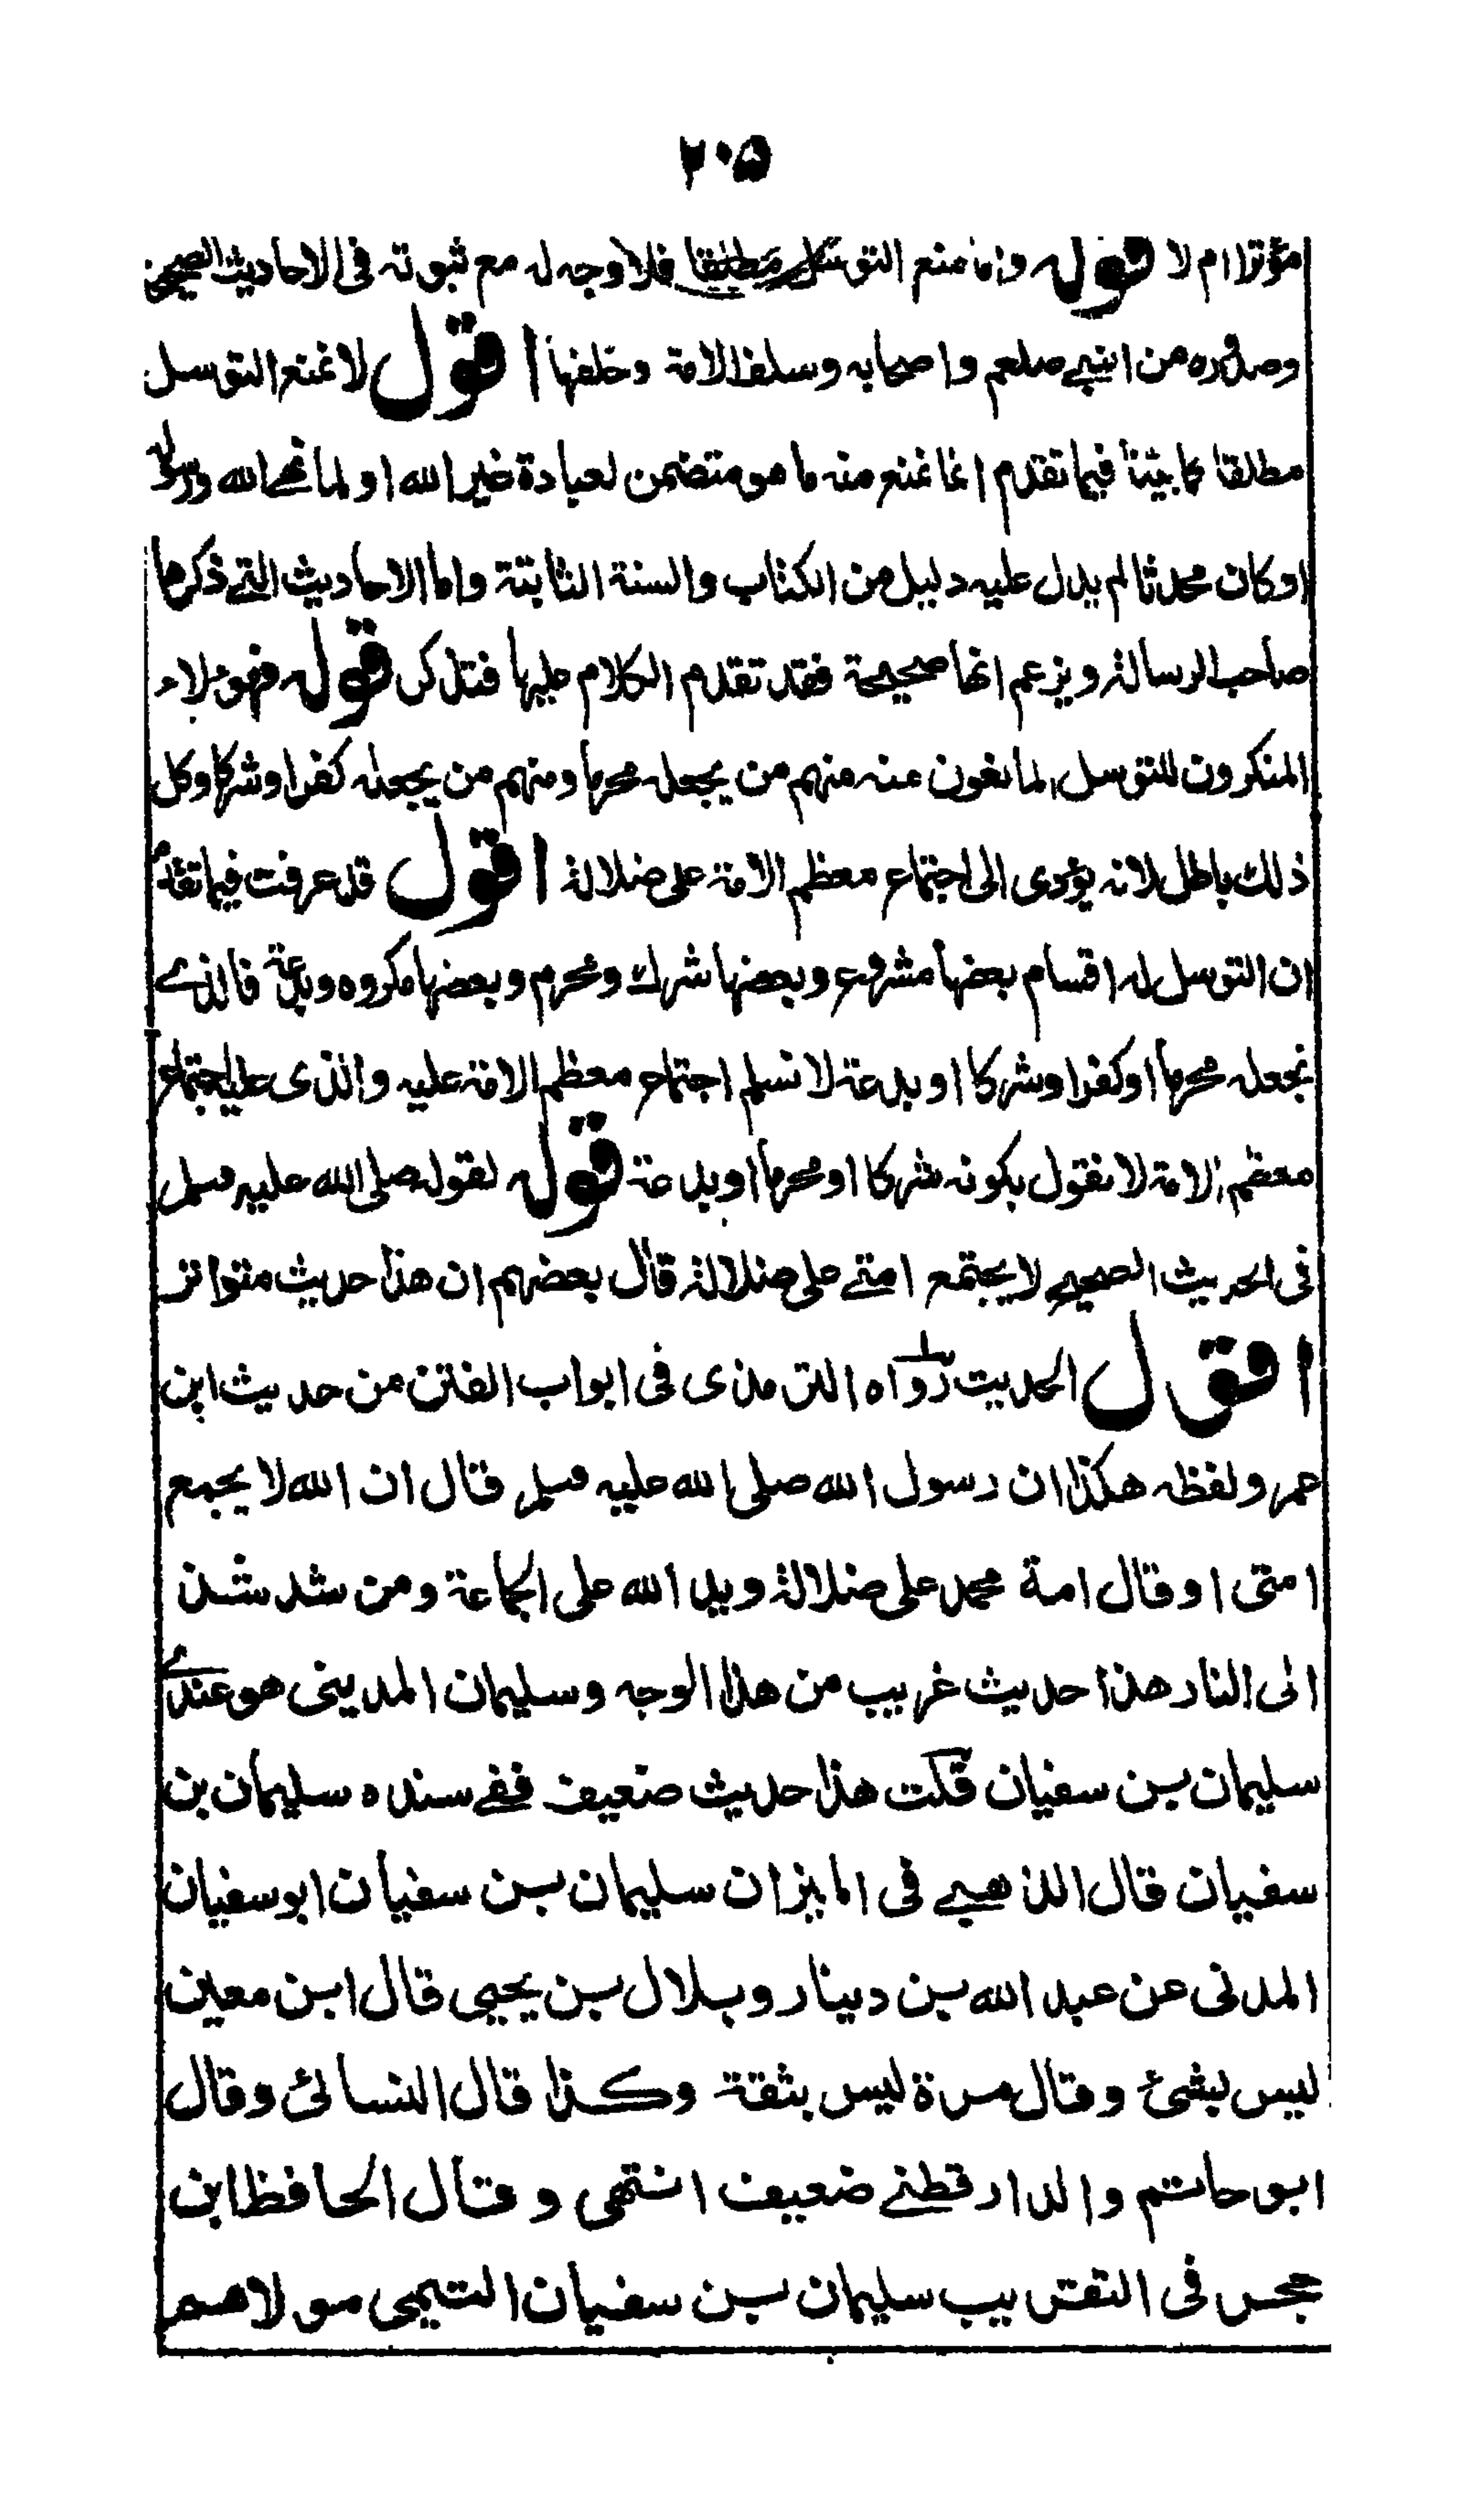 ٢٠٥
مؤثرا ام لا قوله واما منع التوسل مطلقا فلا وجه له مع ثبوته فى الاحاديث الصحيحة
وصدوره من النبي صلعم واصحابه وسلف الامة وخلفها اقول لا نمنع التوسل
مطلقا كما بيّنا فيما تقدم انما نمنع منه ما هو متضمن لعبادة غير الله او لما نهى الله ورسوله
او كان محدثا لم يدل عليه دليل من الكتاب والسنة الثابتة واما الاحاديث التے ذكرها
صاحب الرسالة ويزعم انها صحيحة فقد تقدم الكلام عليها فتذكر قوله فهؤلاء
المنكرون للتوسل المانعون عنه منهم من يجعله محرما ومنهم من يجعله كفرا وشركا وكل
ذلك باطل لانه يؤدى الى اجتماع معظم الامة على ضلالة اقول قد عرفت فيما تقدم
ان التوسل له اقسام بعضها مشروع وبعضها شرك ومحرم وبعضها مكروه وبدعة فالذے
نجعله محرما او كفرا وشركا او بدعة لا نسلم اجتماع معظم الامة عليه والذى عليه اجتماع
معظم الامة لا نقول بكونه شركا او محرما او بدعة قوله لقوله صلى الله عليه وسلم
فى الحديث الصحيح لا يجتمع امتے على ضلالة قال بعضهم ان هذا حديث متواتر
اقول الحديث رواه الترمذى فى ابواب الفتن من حديث ابن
عمر ولفظه هكذا ان رسول الله صلى الله عليه وسلم قال ان الله لا يجمع
امتى او قال امة محمد على ضلالة ويد الله على الجماعة ومن شذ شذ
الى النار هذا حديث غريب من هذا الوجه وسليمان المدينى هو عندى
سليمان بن سفيان قلت هذا حديث ضعيف ففے سنده سليمان بن
سفيان قال الذهبے فى الميزان سليمان بن سفيان ابو سفيان
المدنى عن عبد الله بن دينار وبلال بن يحيى قال ابن معين
ليس بشئ وقال مرة ليس بثقة وكذا قال النسائى وقال
ابو حاتم والدارقطنے ضعيف انتهى وقال الحافظ ابن
حجر فى التقريب سليمان بن سفيان التيمى مولاهم